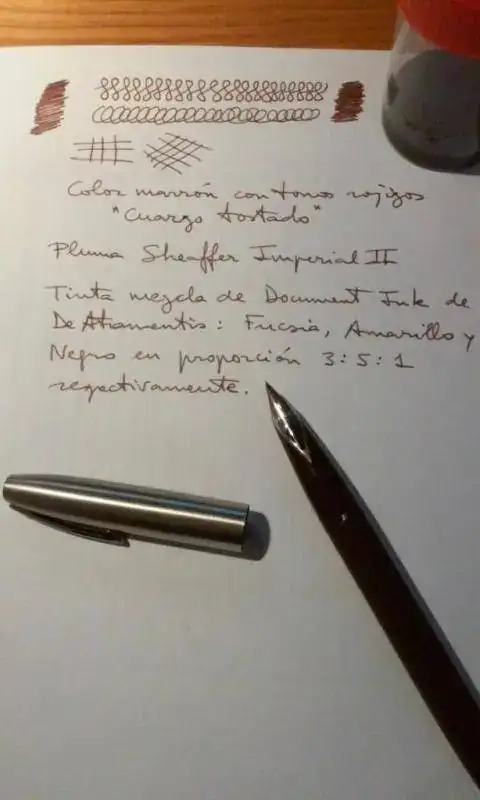 Color marrón con tonos rojizos
"Cuarzo tostado"
Pluma Sheaffer Imperial II
Tinta mezcla de Document Ink de
De Atramentis: Fucsia, Amarillo y
Negro en proporción 3:5:1
respectivamente.